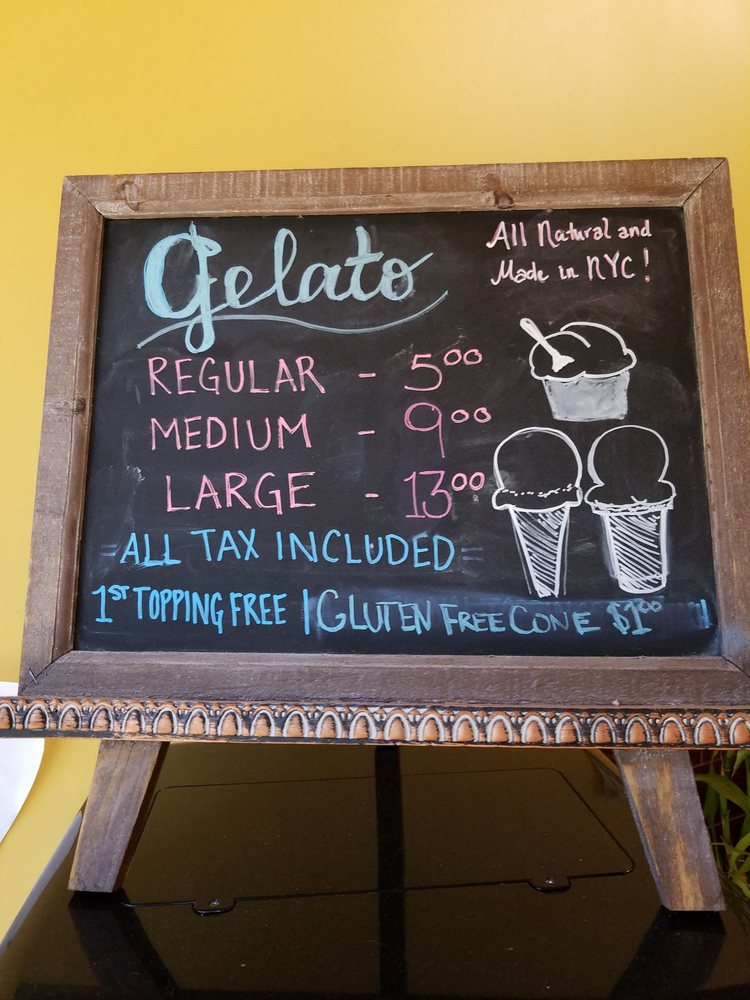 Gelato
All Natural and
Made in NYC!
REGULAR - 5.00
MEDIUM - 9.00
LARGE - 13.00
=ALL TAX INCLUDED=
1ST TOPPING FREE | GLUTEN FREE CONE $1.00 |